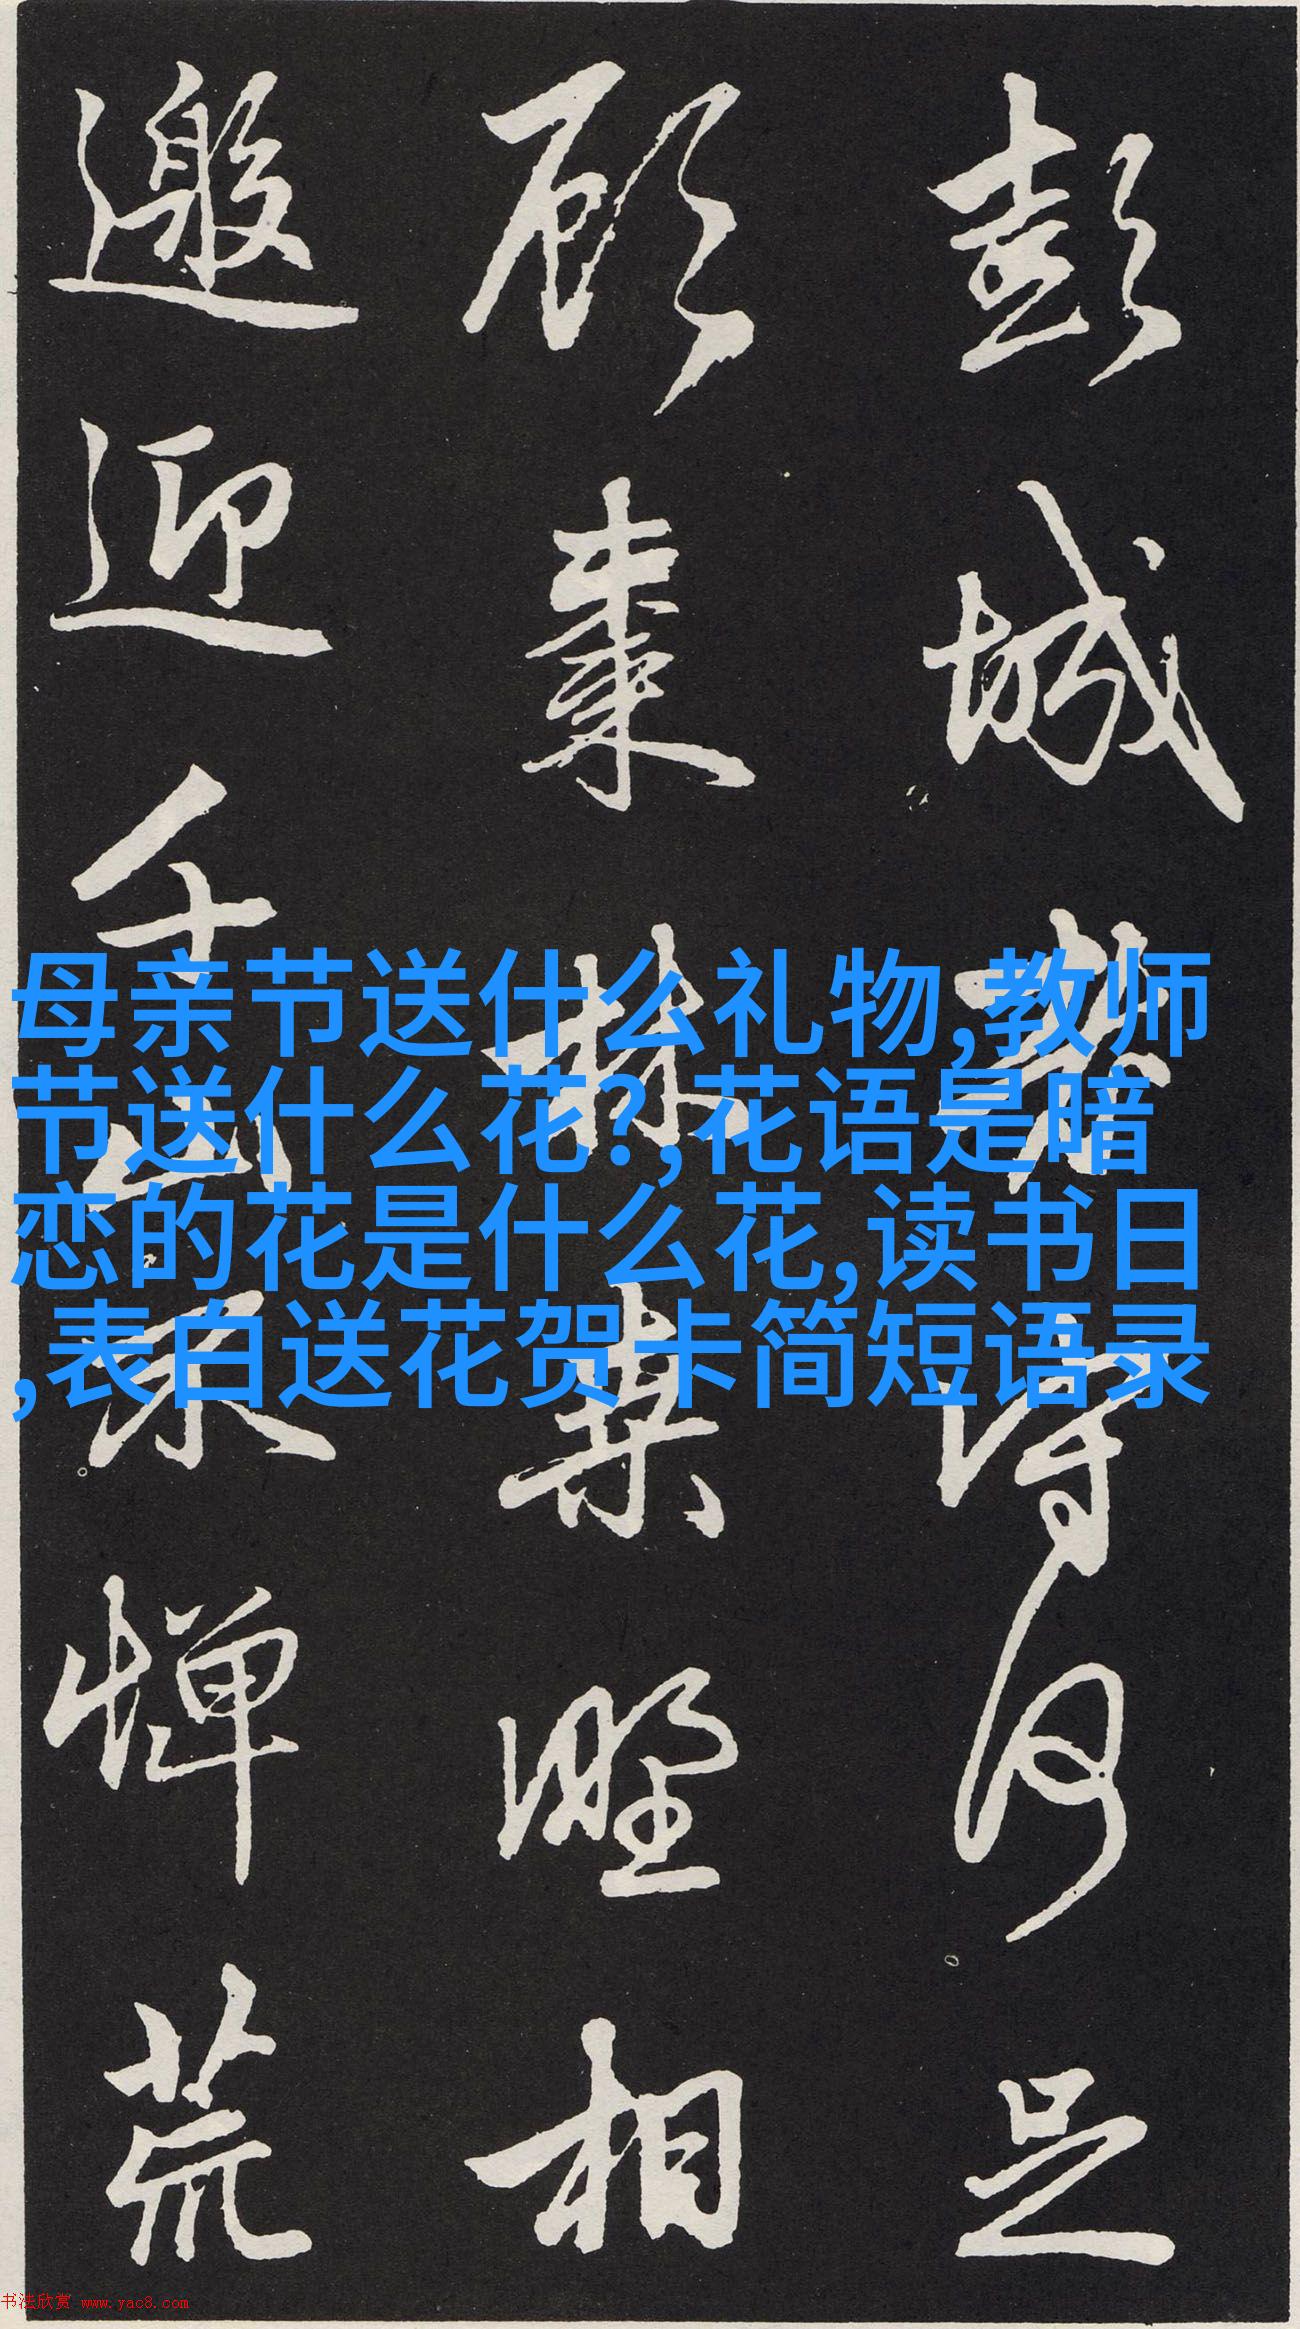 彭城老守何足
顧棗林桑野相
邀迎千山不憚荒
母亲节送什么礼物,教师
节送什么花?,花语是暗
恋的花是什么花,读书日
,表白送花贺卡简短语录
书法欣赏 www.yac8.com